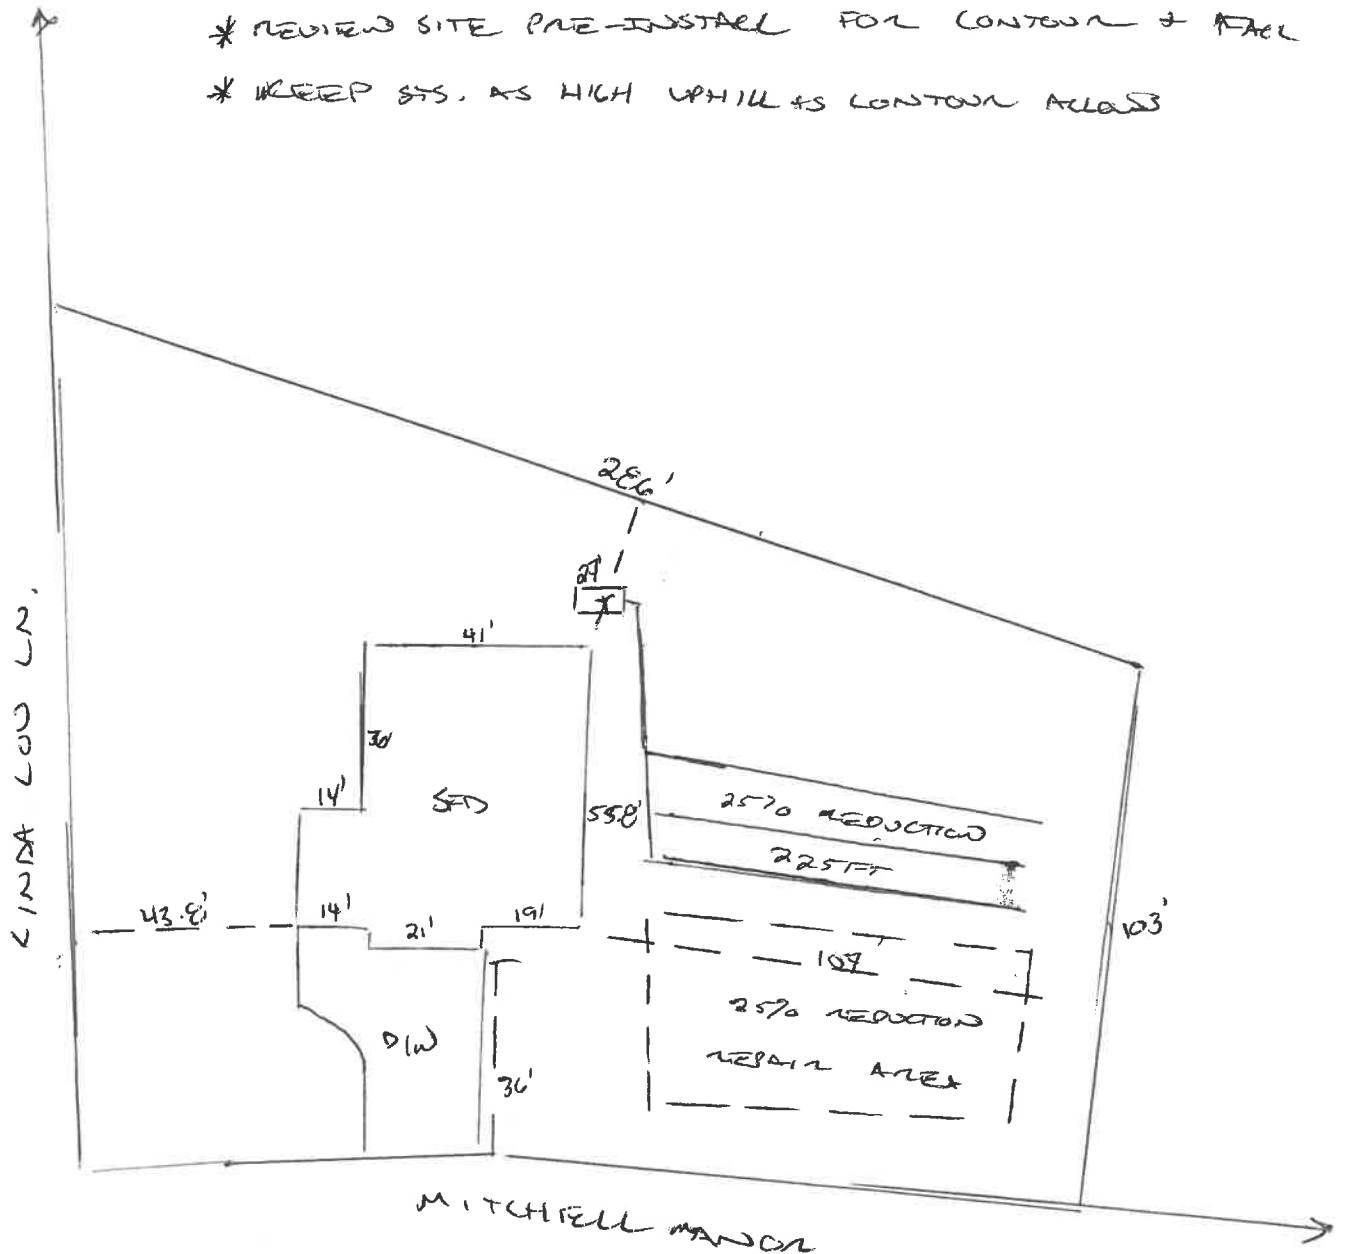 * REVIEW SITE PRE-INSTALL FOR CONTOUR & FALL
* KEEP SYS. AS HIGH UPHILL AS CONTOUR ALLOWS
286'
41'
LINDA LOU LN.
14'
SFD
55.8'
25% REDUCTION
225FT
43.8'
14'
21'
19'
103'
109'
25% REDUCTION
REPAIR AREA
D/W
36'
MITCHELL MANOR